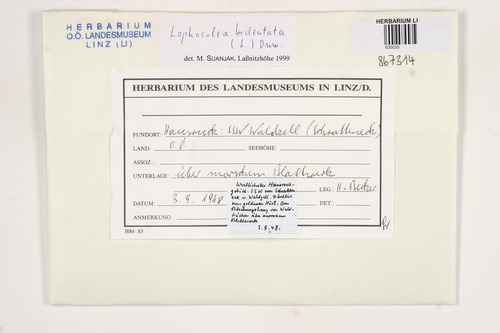 HERBARIUM
O.Ö. LANDESMUSEUM
LINZ (LI)
Lophocolea bidentata
(L.) Dum.
det. M. SUANJAK, Laßnitzhöhe 1999
HERBARIUM LI
635035
867314
HERBARIUM DES LANDESMUSEUMS IN LINZ/D.
FUNDORT: Hausruck: SSW Waldzell (Schratteneck)
LAND: O.Ö. SEEHÖHE:
ASSOZ.:
UNTERLAGE: über morschem Blattwerk
DATUM: 3.9.1948 LEG.: H. Becker
DET.:
ANMERKUNG:
Westlichster Hausruck-
gebiet. SSW von Schratten-
eck u. Waldzell. Nördlich
vom goldenen Hirsch. Am
über morschem
Blattwerk
3.9.48.
I884 83